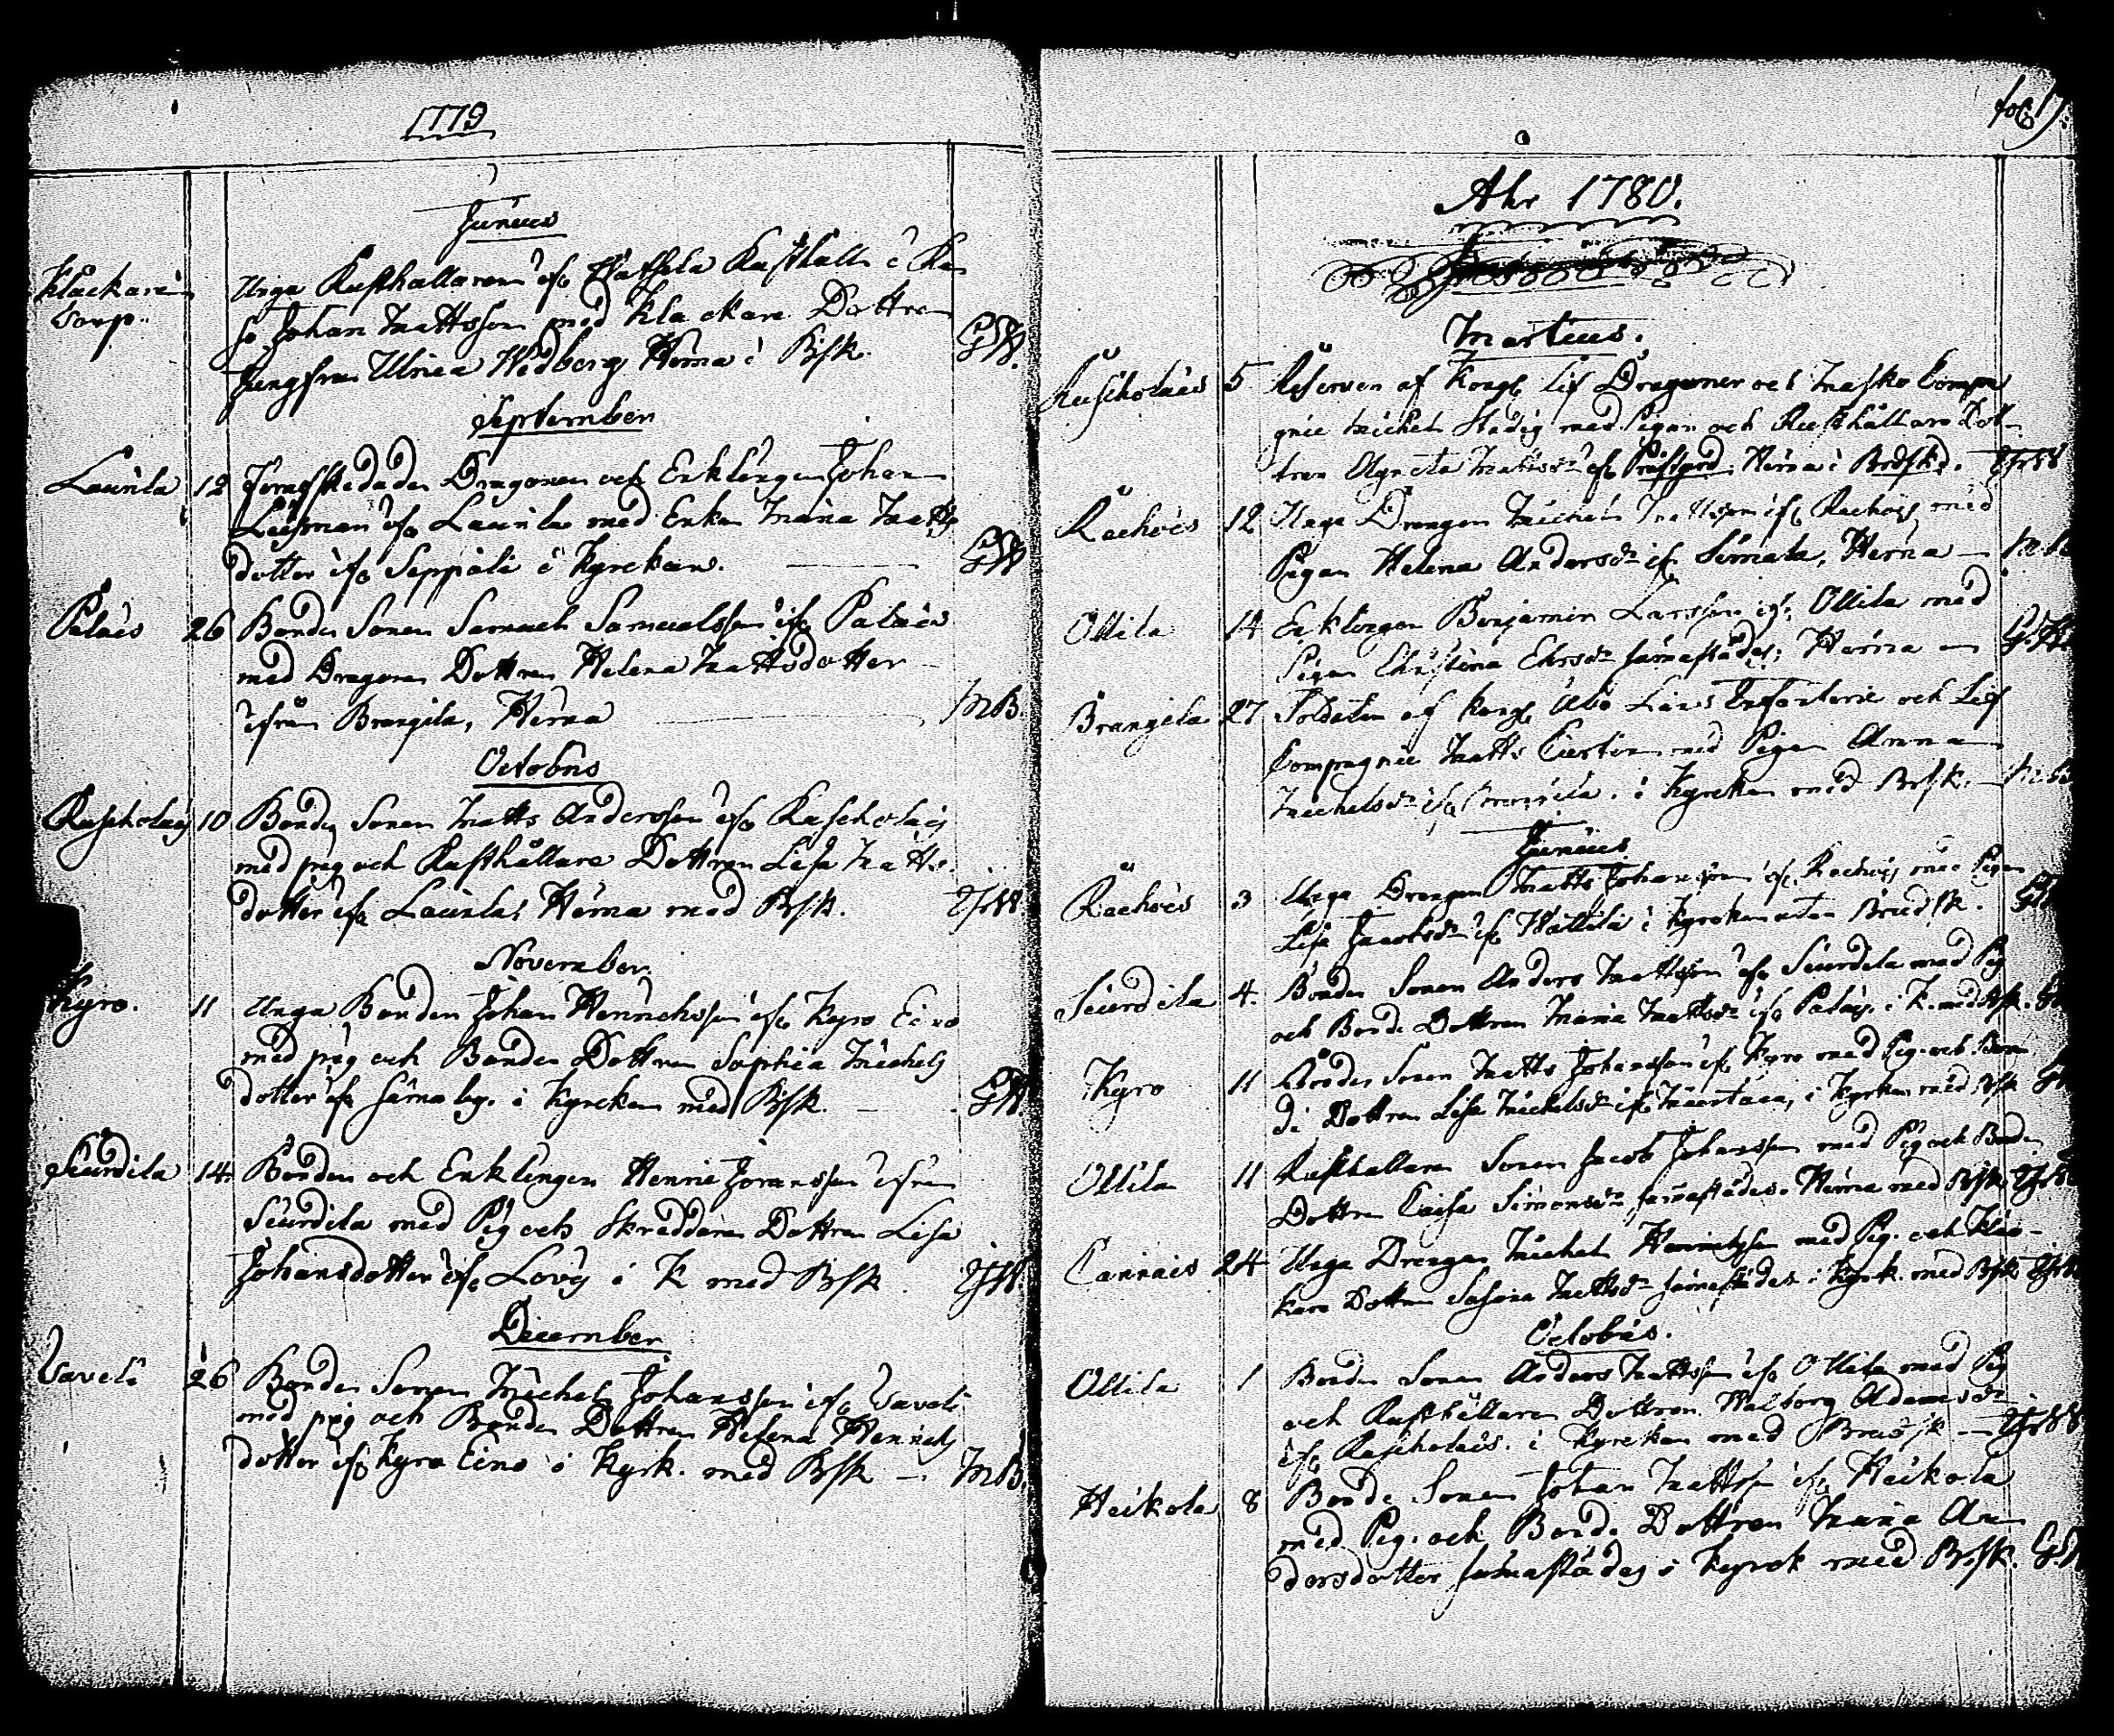 1779
Junius
Klackare Unga Rusthållaren ifr. Hathela Rusthåll i
torp. Johan Mattsson med Klackare Dottren
Jungfrun Ulrica Widberg Hema i Bsk. GW.
September
Launla 12 Dragonen och Enklingen Johan
ifr. Launla med Enkan Maria Matts
dotter ifr. Seppälä i Kyrckan. GW
Palais 26 Bonde Sonen Samuel Samuelsson ifr. Palais
med Dragone Dottren Helena Mattsdotter
ifrån Brangila, Hema MB.
Octobris
Ruscholaig 10 Bonde Sonen Matts Andersson ifr. Ruscholaig
med pig. och Rusthållare Dottren Lisa Matts
dotter ifr. Launla, Hema med Bsk.
November
Kyro. 11 Unga Bonden Johan Henrichsson ifr. Kyro Eino
med pig och Bonde Dottren Sophia Michels
dotter ifr. samma by. i Kyrckan med Bsk. GW
Seurdila 14. Bonden och Enklingen Henric Jöransson ifrån
Seurdila med Pig och Skreddare Dottren Lisa
Johansdotter ifr. i K med Bsk
December
Waveli 26 Bonde Sonen Michel Johansson ifr. Waveli
med pig och Bonde Dottren Helena Henrichs
dotter ifr. Kyro Eino i Kyrk. med Bsk MB.
fol 17.
Ahr 1780.
Martius.
Ruscholais 5 Reserven af Kongl. Lif Dragoner och Masko Compa
gnie Michel Stadig med Pigan och Rusthållare Dot-
tren Agneta Mattsdr ifr. Prästgård Hema i Brudsk.
Rachois 12 Unga Drengen Michel Mattsson ifr. Rachois med
Pigan Helena Andersdr ifr. Simala, Hema
Ollila 14 Enklingen Benjamin Larsson ifr. Ollila med
Pigan Christina Ehrsdr samastädes, Hema
Brangila 27 Soldaten af Kongl. Åbo Läns Infanterie och Lif
Compagnie Matts med Pigan Anna
Michelsdr ifr. i Kyrckan med Brsk.
Junius
Rachois 3 Unga Drengen Matts Johansson ifr. Rachois med Pigan
Lisa Jacobsdr ifr. Wallila i Kyrckan utan Brudsk.
Seurdila 4. Bonde Sonen Anders Mattsson ifr. Seurdila med Pig
och Bonde Dottren Maria Mattsdr ifr. Palais. i K. med Bsk.
Kyro 11 Bonde Sonen Matts Johansson ifr. Kyro med Pig. och Bon
de Dottren Lisa Michelsdr ifr. i Kyrckan med Bsk
Ollila 11 Rusthållare Sonen Jacob Johansson med Pig och Bonde
Dottren Caisa Simonsdr samastädes. Hema med Bsk
Cannais 24 Unga Drengen Michel Henricsson med Pig. och Klac-
kare Dottren Mattsdr samastädes i Kyrk. med Bsk
Octobris.
Ollila 1 Bonde Sonen Anders Mattsson ifr. Ollila med Pig
och Rusthållare Dottren Walborg Adamsdr
ifr. Ruscholais. i Kyrckan med Brudsk
Heikola 8 Bonde Sonen Johan Mattss. ifr. Heikola
med Pig. och Bonde Dottren Maria An
dersdotter samastädes i Kyrck med Brsk.